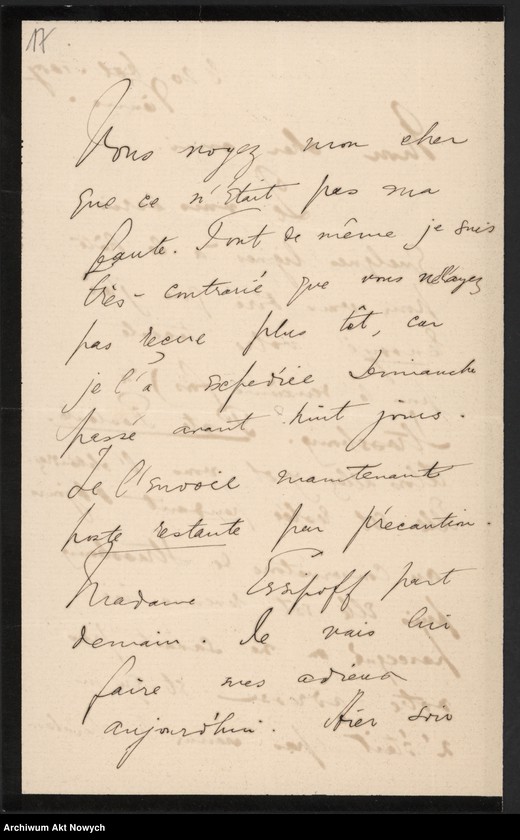 17
Vous voyez mon cher
que ce n'était pas ma
faute. Tout de même je suis
très-contrarié que vous ne l'ayez
pas reçue plus tôt, car
je l'a expediée Dimanche
passé avant huit jours.
Je l'envoie maintenant
poste restante par précaution.
Madame Essipoff part
demain. Je vais lui
faire mes adieux
aujourd'hui. Hier soir
Archiwum Akt Nowych